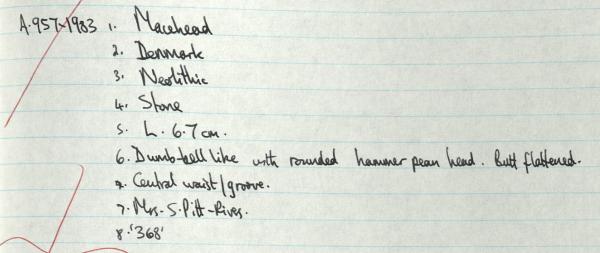 A.957-1983 1. Macehead
2. Denmark
3. Neolithic
4. Stone
5. L. 6.7 cm.
6. Dumb-bell like with rounded hammer pean head. Butt flattened.
7. Central waist/groove.
7. Mrs. S. Pitt-Rives.
8. '368'